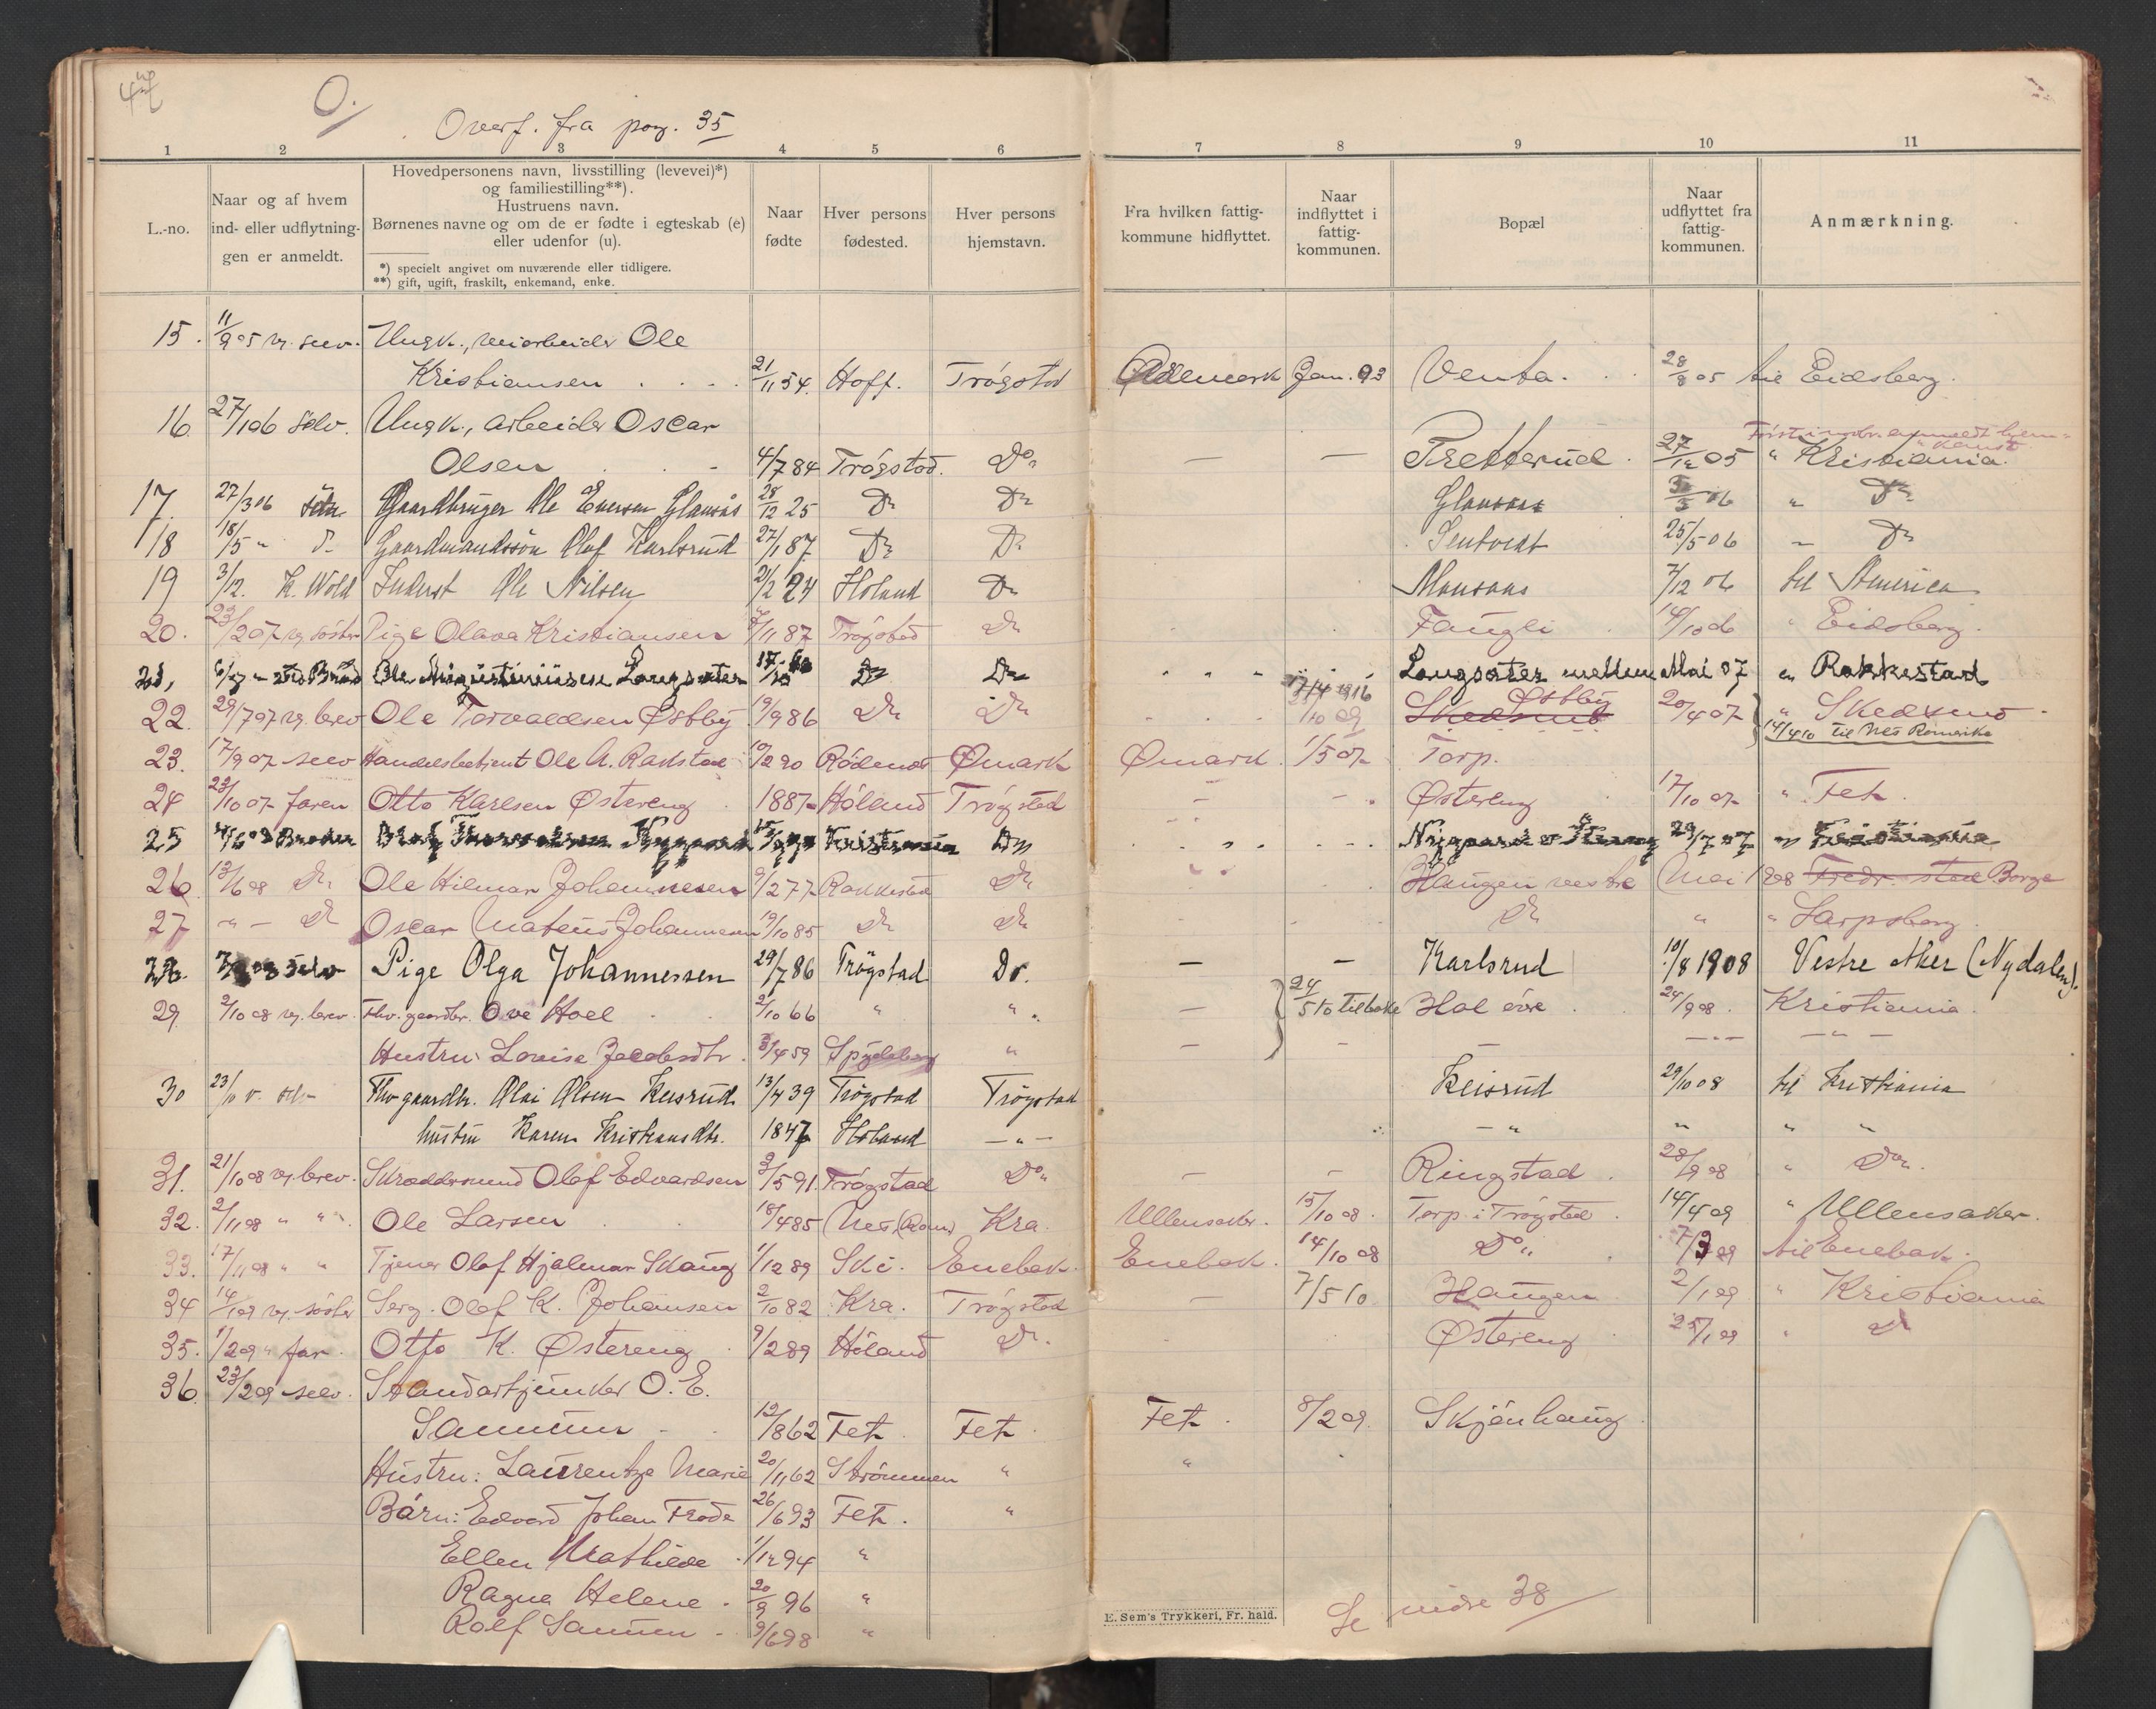 O.
Overf. fra pag. 35
1 2 3 4 5 6 7 8 9 10 11
L.-no.
Naar og af hvem ind- eller udflytning- gen er anmeldt.
Hovedpersonens navn, livsstilling (levevei)*)
og familiestilling**).
Hustruens navn.
Børnenes navne og om de er fødte i egteskab (e)
eller udenfor (u).
*) specielt angivet om nuværende eller tidligere.
**) gift, ugift, fraskilt, enkemand, enke.
Naar fødte
Hver persons fødested.
Hver persons hjemstavn.
Fra hvilken fattig- kommune hidflyttet.
Naar indflyttet i fattig- kommunen.
Bopæl
Naar udflyttet fra fattig- kommunen.
Anmærkning.
15. 11/9 05 selv. Ungk., veiarbeider Ole
Kristiansen 21/11 54. Hoff. Trøgstad Ødemark Jan. 93 Venta. 28/8 05 til Eidsberg.
16. 27/1 06 selv. Ungk., arbeider Oscar
Olsen 4/7 84 Trøgstad. Do. — — Pretterud 27/12 05 " Kristiania.
17. 27/3 06 Gaardbruger Ole Eversen Glansås 28/12 25 Do Do Glansaas 06 " Do
18 18/5 " Gaardmandssøn Olaf Karlsrud 27/1 87 Do Do Sentvedt 25/5 06 " Do
19 3/12. K. Wold Inderst Ole Nilsen 2/2 24 Høland Do Monsaas 7/12 06 til Amerika
20. 23/2 07 søster Pige Olava Kristiansen 11 87 Trøgstad Do Fangli 14/10 06 " Eidsberg.
21, Ole Augustiniusen Langsæter Do Do Langsæter mellem Mai 07 " Rakkestad
22. 29/7 07 brev Ole Torvaldsen Østby 9/9 86 Do Do 1/10 09 Østby 20/4 07 " Skedsmo
14/4 10 til Nes Romerike
23. 17/9 07 selv Handelsbetjent Ole A. Rakstad 10/2 90 Rødenes Ømark Ømark. 1/5 07 Torp.
24 23/10 07 faren Otto Karlsen Østereng 1887 Høland Trøgstad — — Østereng 17/10 07 " Fet.
25 Broder Kristiania Do 29/7 07 "
26. 13/6 08 Do Ole Hilmar Johannesen 9/2 77 Rakkestad Do Haugen vestre Mai 1908 Fredr.stad Borge
27 " - Do Oscar Mateus Johannesen 19/10 85 Do Do Do " " Sarpsborg
28. selv Pige Olga Johannessen 29/7 86 Trøgstad Do. — — Karlsrud 10/8 1908 Vestre Aker (Nydalen).
29. 2/10 08 brev. Fhv. gaardbr. Ove Hoel 2/10 66 " " — 24/5 10 tilbake Hol øvre 24/9 08. Kristiania.
Hustru Lovise Jacobsdtr. 3/4 59 Spydeberg " — — — — " — — " —
30 23/10 Fhv gaardbr. Olai Olsen Keisrud 13/4 39 Trøgstad Trøgstad Keisrud 29/10 08 til Kristiania
hustru Karen Kristiansdtr. 1847 Høland — " — — " " " "
31. 21/10 08 brev. Skræddersvend Olof Edvardsen 3/5 91. Trøgstad Do — — Ringstad 28/9 08 " Do.
32. 2/11 08 " " Ole Larsen 18/4 85 Nes (Rom) Kra. Ullensaker. 15/10 08. Torp i Trøgstad 14/4 09 " Ullensaker.
33. 17/11 08 " " Tjener Olaf Hjalmar Skaug 1/12 89 Ski. Enebak. Enebak. 14/10 08 Do 7/3 09 til Enebak.
34 14/1 09 søster Serg. Olaf K. Johansen 2/10 82 Kra. Trøgstad — 7/5 10 Haugen 2/1 09 " Kristiania
35. 1/2 09 " far Otto K. Østereng 9/2 89 Høland Do. Østereng 25/1 09 " Do
36. 23/2 09 selv. Standartjunker O. E.
12/8 62 Fet. Fet. Fet. 8/2 09. Skjønhaug
Hustru: Laurentze Marie 20/11 62 Strømmen " "
Børn: Edvard Johan Frode 26/6 93 Fet. "
Ellen Mathilde 1/12 94 "
Ragna Helene. 20/9 96 "
Rolf 9/6 98 "
E. Sem's Trykkeri, Fr. hald.
Se side 38